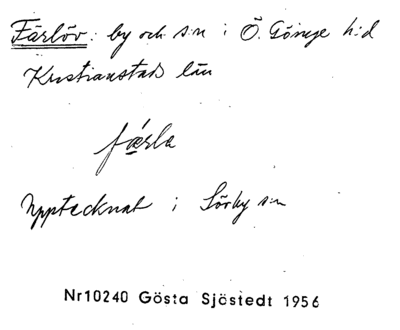 Färlöv: by och s:n i Ö. Göinge h:d
Kristianstads län
færla
Upptecknat i Sörby s:n
Nr10240 Gösta Sjöstedt 1956